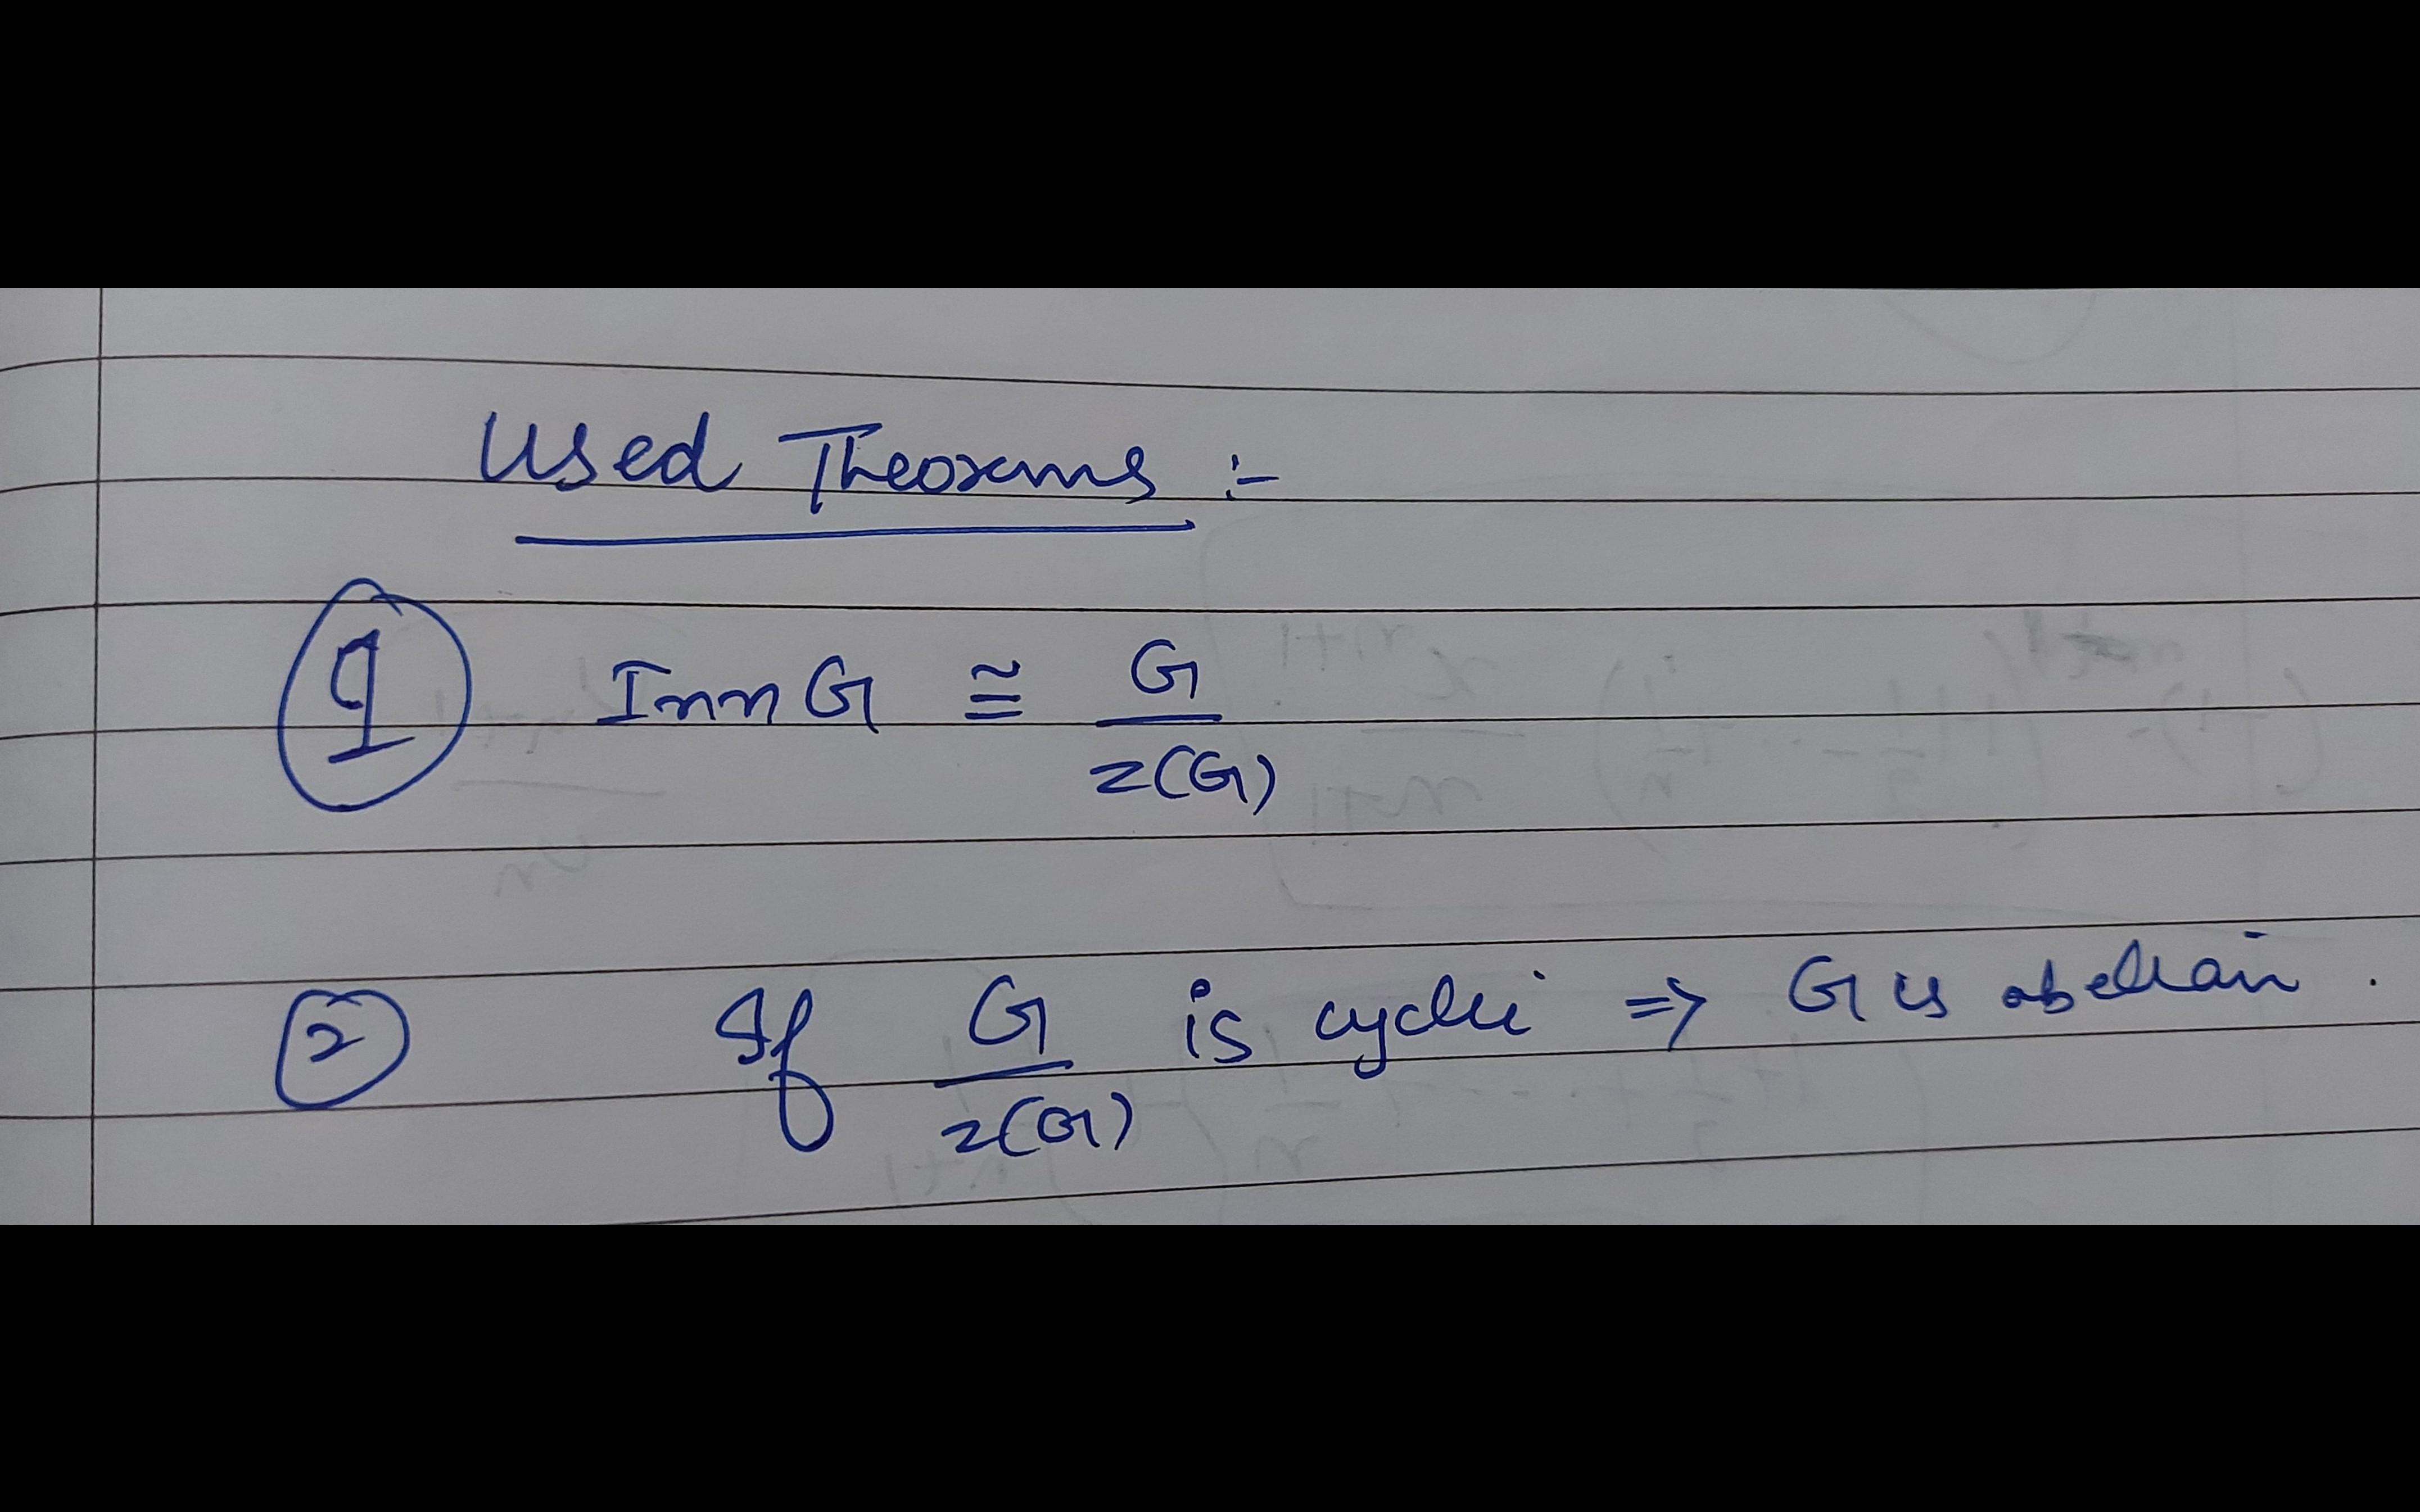 Used Theorems :-
1 Inn G ≅ G / Z(G)
2 If G / Z(G) is cyclic => G is abelian .